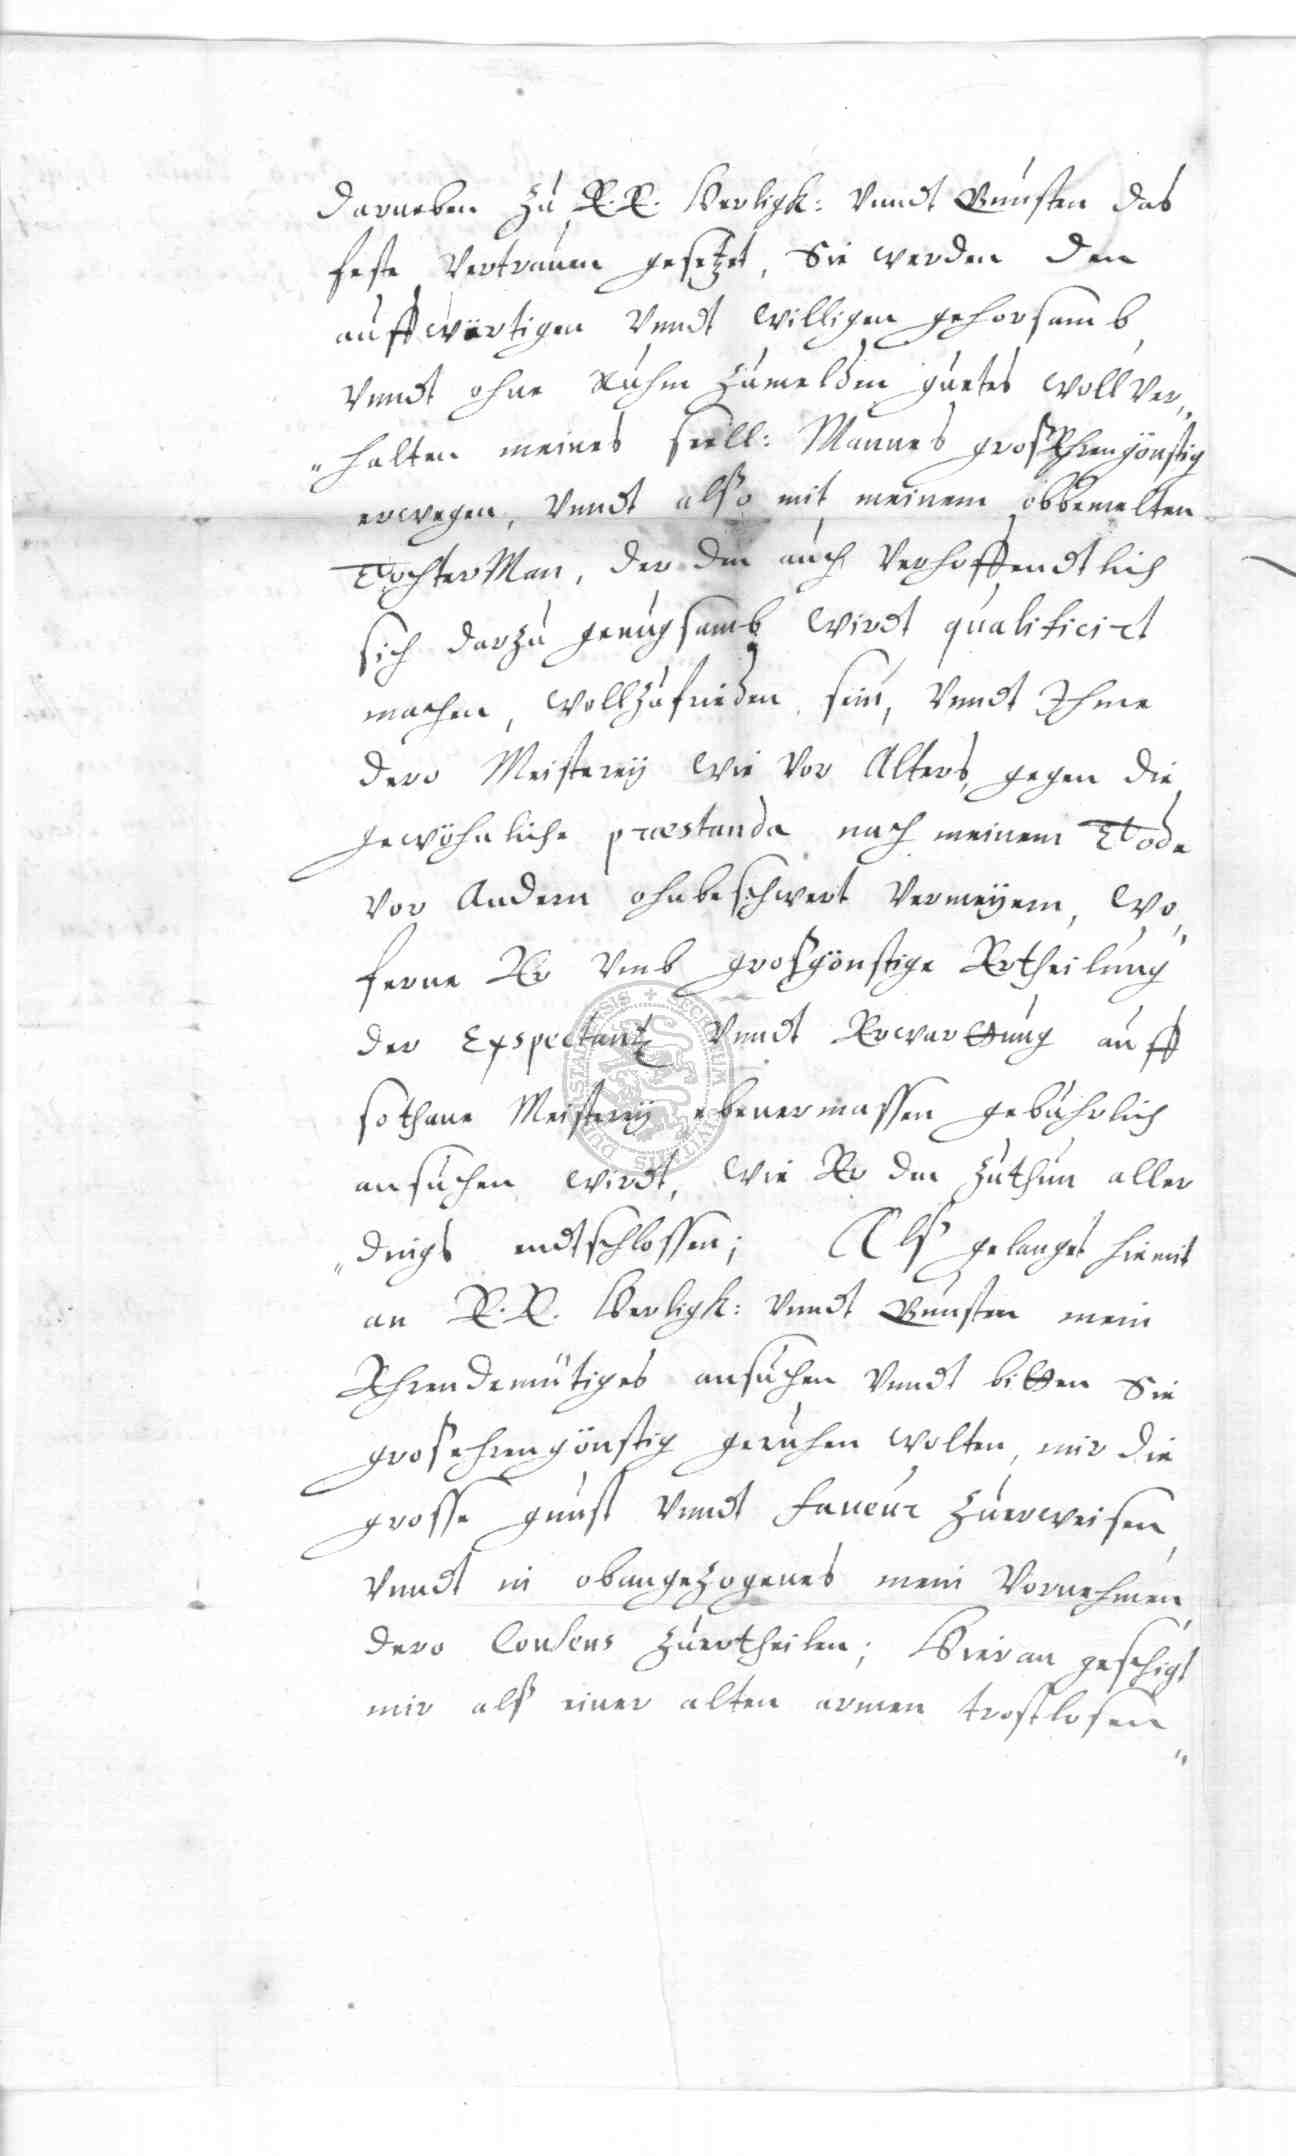 darneben zu E. E. Herligk: vnndt Gunsten das
feste Vertrauen gesetzet, Sie werden den
auffwärtigen vnndt willigen gehorsamb,
vnndt ohne Ruhm zumelden guetes wollver„
„halten meines seell: Mannes großEhrengönstig
erwegen, vnndt also mit meinem obbemelten
TochterMan, der den auch verhoffendtlich
sich darzu genugsamb wirdt qualificirt
machen, wollzufrieden sein, vnndt Ihme
dero Meisterey wie vor Alters, gegen die
gewöhnliche præstanda nach meinem Tode
vor Andern ohnbeschwert vermeyern, Wo„
ferne Er vmb großgönstige Ertheilung
der Exspectantz vnndt Erwarttung auff
sothane Meisterey ebenermassen gebührlich
ansuchen wirdt, wie Er den zuthun aller
„dings endtschlossen; Alß gelanget hiemit
an E. E. Herligk: vnndt Gunsten mein
Ehrendemütiges ansuchen vnndt bitten Sie
großehrengönstig geruhen wolten, mir die
grosse gunst vnndt faueur zuerweisen,
vnndt in obangezogenes mein Vornehmen,
dero Consens zuertheilen; Hieran geschigt
mir alß einer alten armen trostlosen„
SECRETUM CIVITATIS DUDERSTADENSIS